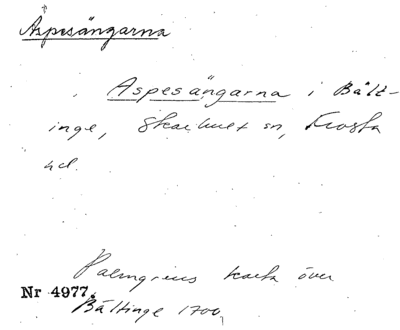 Aspesängarna
Aspesängarna i Bält-
inge, Skarhult sn, Frosta
hd.
Palmgrens karta över
Nr 4977.
Bältinge 1700,